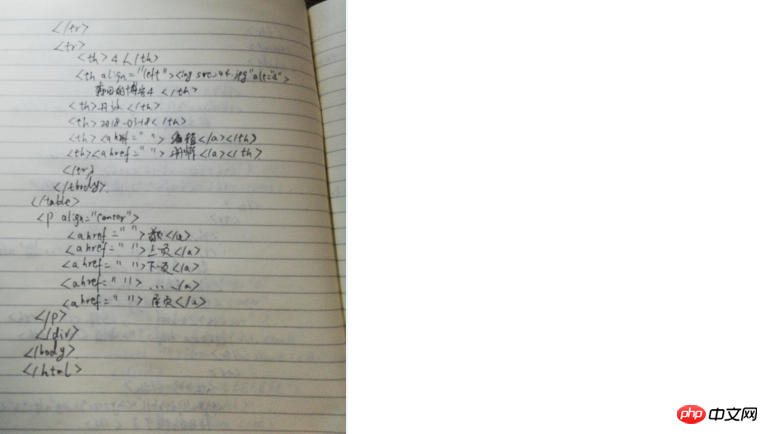 </tr>
<tr>
<th>4</th>
<th align="left"><img src="44.jpg" alt="4">
的博客4 </th>
<th></th>
<th>2018-03-18</th>
<th><a href=" "> 编辑</a></th>
<th><a href=" "> 删除</a></th>
</tr>
</tbody>
</table>
<p align="center">
<a href=" ">首页</a>
<a href=" ">上页</a>
<a href=" ">下页</a>
<a href=" "> ... </a>
<a href=" "> 尾页</a>
</p>
</div>
</body>
</html>
php 中文网